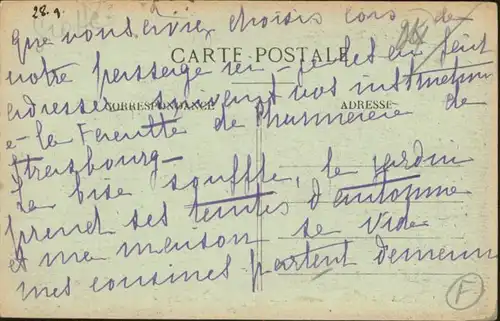 28.9
que vous aviez choisis lors de
CARTE POSTALE
notre passage ici je les ai fait
CORRESPONDANCE
ADRESSE
adresser suivant vos instructions
à la Faculté de Pharmacie de
Strasbourg—
La bise souffle, le jardin
prend ses teintes d'automne
et ma maison se vide
mes cousines partent demain
F